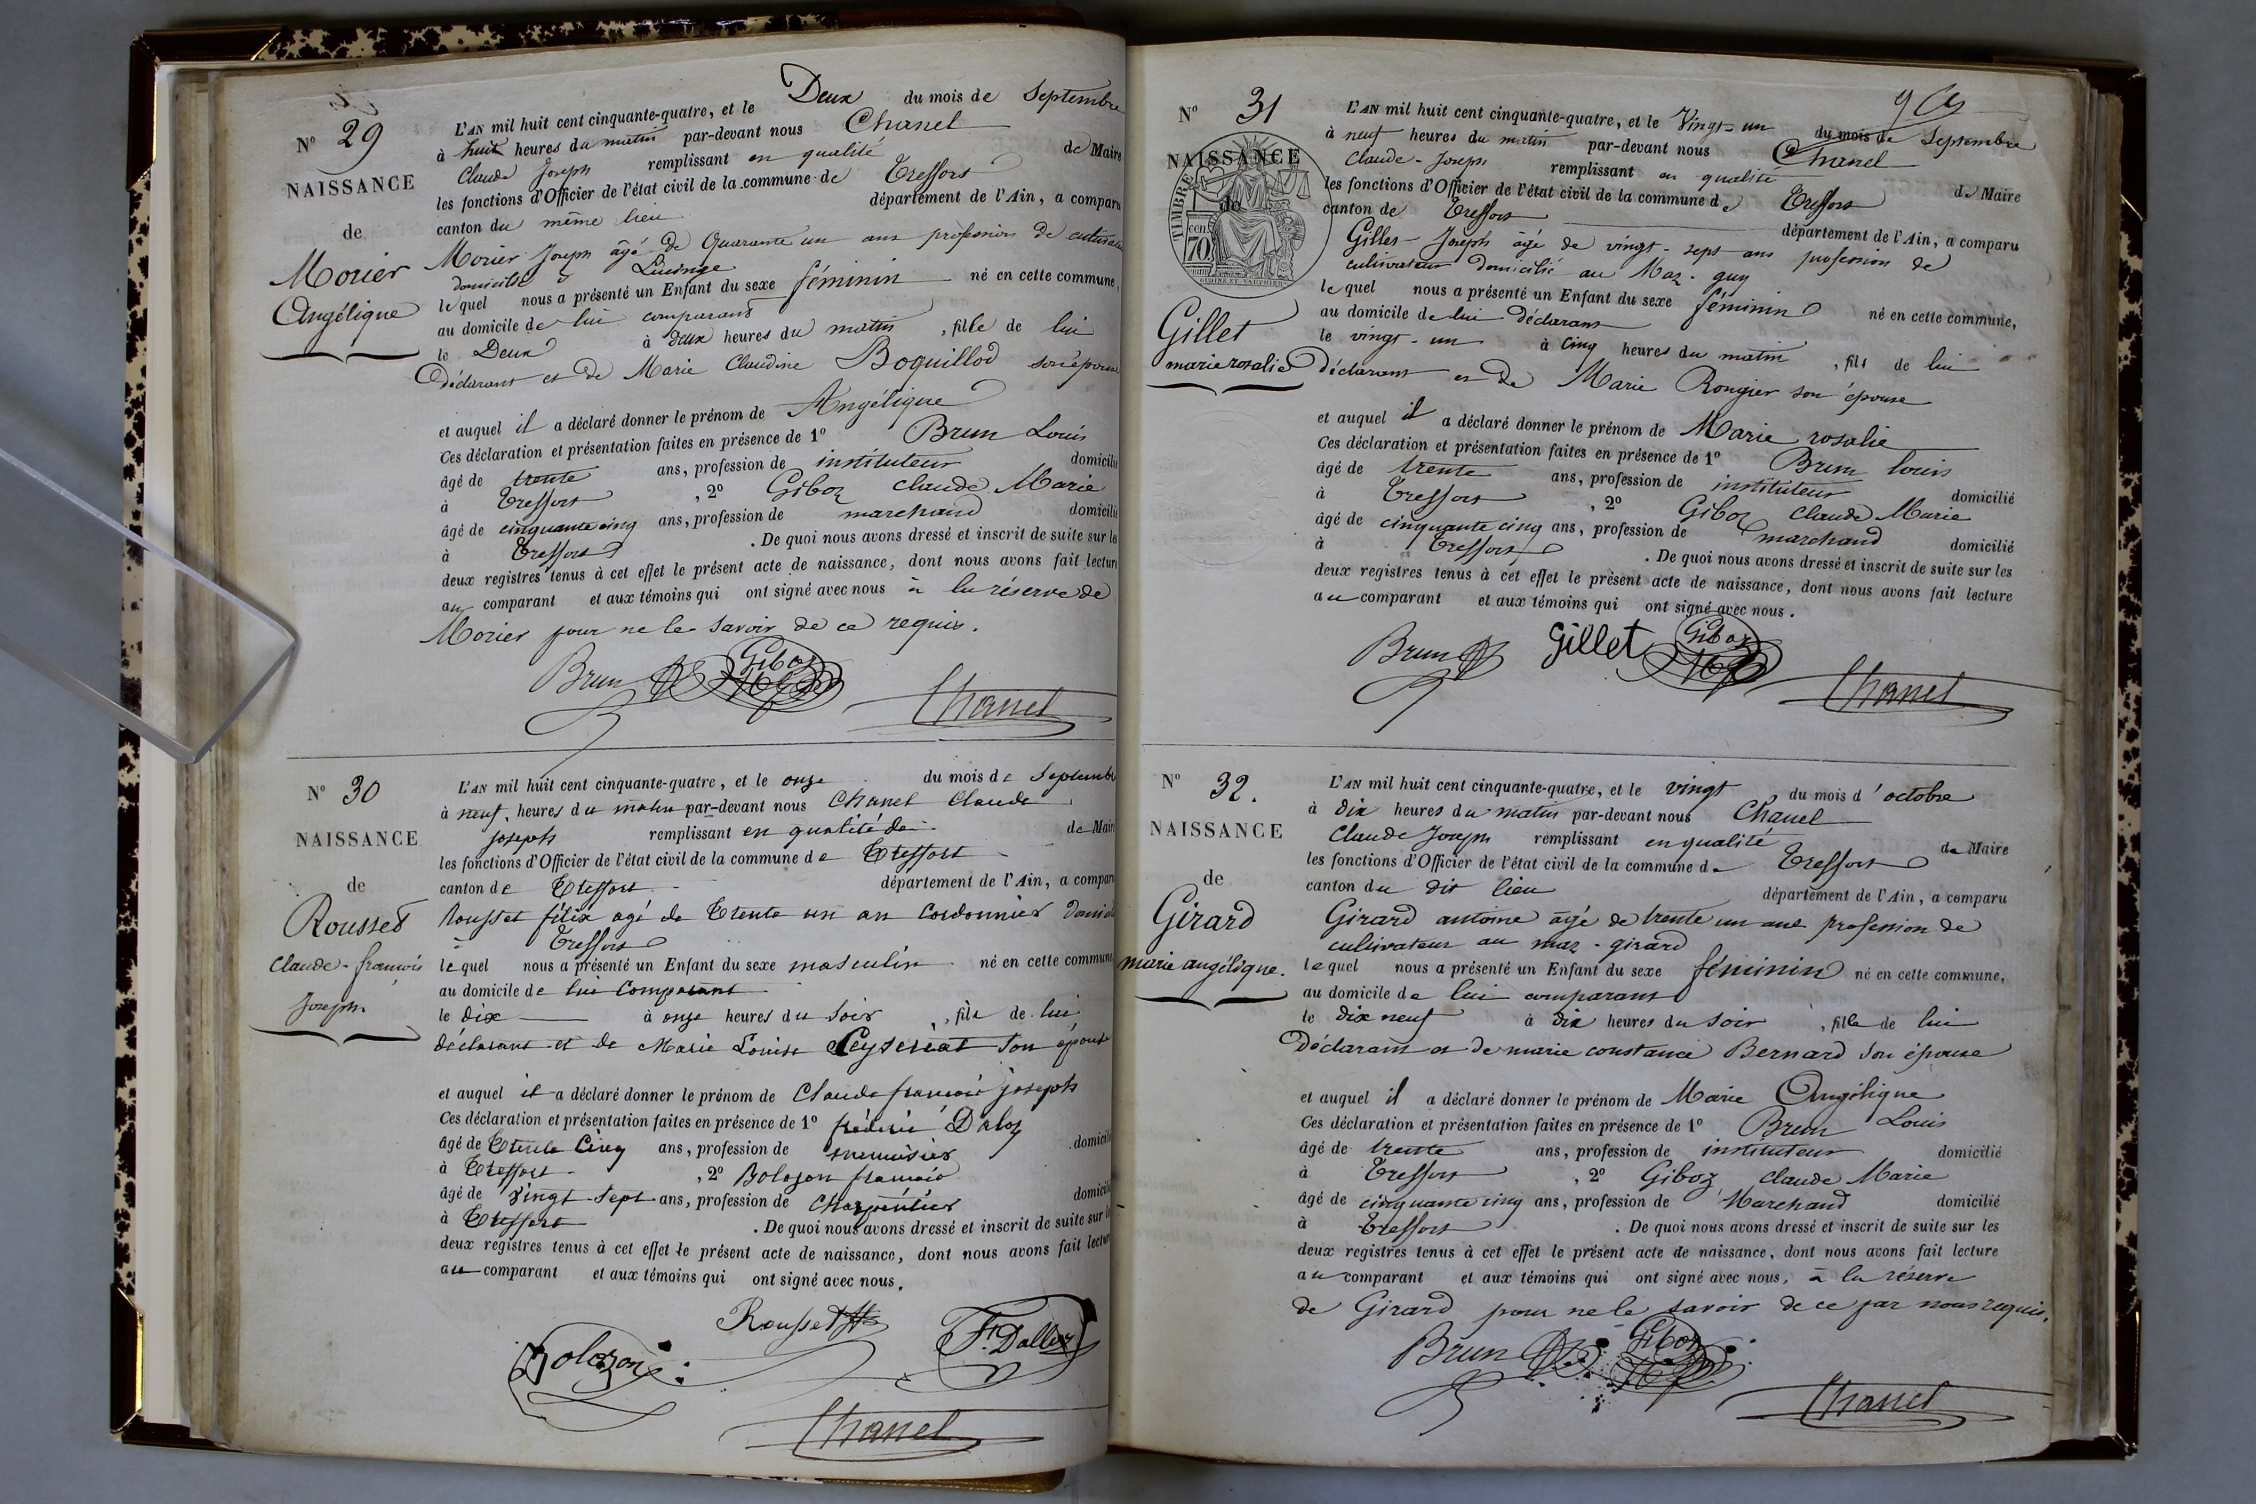 N° 29
NAISSANCE
de
Morier
Angélique
L'AN mil huit cent cinquante-quatre, et le Deux du mois de Septembre
à huit heures du matin par-devant nous Chanel
Claude Joseph remplissant en qualité de Maire
les fonctions d'Officier de l'état civil de la commune de Treffort
canton du même lieu département de l'Ain, a comparu
Morier Joseph âgé de Quarante un ans profession de
domicilié à
lequel nous a présenté un Enfant du sexe féminin né en cette commune,
au domicile de lui comparant
le Deux à deux heures du matin, fille de lui
Déclarant et de Marie Claudine Boquillod son épouse
et auquel il a déclaré donner le prénom de Angélique
Ces déclaration et présentation faites en présence de 1° Brun Louis
âgé de trente ans, profession de instituteur domicilié
à Treffort, 2° Giboz Claude Marie
âgé de cinquante cinq ans, profession de marchand domicilié
à Treffort. De quoi nous avons dressé et inscrit de suite sur les
deux registres tenus à cet effet le présent acte de naissance, dont nous avons fait lecture
au comparant et aux témoins qui ont signé avec nous à la réserve de
Morier pour ne le savoir de ce requis.
Brun Giboz
Chanel
N° 30
NAISSANCE
de
Rousset
Claude-françois
Joseph
L'AN mil huit cent cinquante-quatre, et le onze du mois de Septembre
à neuf heures du matin par-devant nous Chanel Claude
joseph remplissant en qualité de de Maire
les fonctions d'Officier de l'état civil de la commune de Treffort
canton de Treffort département de l'Ain, a comparu
Rousset félix agé de trente un an Cordonnier
à Treffort
lequel nous a présenté un Enfant du sexe masculin né en cette commune
au domicile de lui Comparant
le dix à onze heures du soir, fils de lui
déclarant et de Marie Louise Peyseriat son épouse
et auquel il a déclaré donner le prénom de Claude françois joseph
Ces déclaration et présentation faites en présence de 1° fréderic Daloz
âgé de trente Cinq ans, profession de menuisier domicilié
à Treffort, 2° Bolozon francois
âgé de vingt sept ans, profession de Charpentier domicilié
à Treffort. De quoi nous avons dressé et inscrit de suite sur les
deux registres tenus à cet effet le présent acte de naissance, dont nous avons fait lecture
au comparant et aux témoins qui ont signé avec nous.
Rousset F. Dalloz
Bolozon
Chanel
N° 31
NAISSANCE
de
TIMBRE
70
Gillet
marie rosalie
L'AN mil huit cent cinquante-quatre, et le Vingt-un du mois de Septembre
à neuf heures du matin par-devant nous Chanel
Claude-Joseph remplissant en qualité de Maire
les fonctions d'Officier de l'état civil de la commune de Treffort
canton de Treffort département de l'Ain, a comparu
Gillet Joseph âgé de vingt-sept ans profession de
cultivateur domicilié au Maz-guy
lequel nous a présenté un Enfant du sexe féminin né en cette commune,
au domicile de lui déclarant
le vingt-un à cinq heures du matin, fils de lui
Déclarant et de Marie Rongier son épouse
et auquel il a déclaré donner le prénom de Marie rosalie
Ces déclaration et présentation faites en présence de 1° Brun louis
âgé de trente ans, profession de instituteur domicilié
à Treffort, 2° Giboz Claude Marie
âgé de cinquante cinq ans, profession de marchand domicilié
à Treffort. De quoi nous avons dressé et inscrit de suite sur les
deux registres tenus à cet effet le présent acte de naissance, dont nous avons fait lecture
au comparant et aux témoins qui ont signé avec nous.
Brun Gillet Giboz
Chanel
N° 32.
NAISSANCE
de
Girard
marie angélique.
L'AN mil huit cent cinquante-quatre, et le vingt du mois d'octobre
à dix heures du matin par-devant nous Chanel
Claude Joseph remplissant en qualité de Maire
les fonctions d'Officier de l'état civil de la commune de Treffort
canton du dit lieu département de l'Ain, a comparu
Girard antoine âgé de trente un ans profession de
cultivateur au maz-girard
lequel nous a présenté un Enfant du sexe féminin né en cette commune,
au domicile de lui comparant
le dix neuf à dix heures du soir, fille de lui
Déclarant et de marie constance Bernard son épouse
et auquel il a déclaré donner le prénom de Marie Angélique
Ces déclaration et présentation faites en présence de 1° Brun Louis
âgé de trente ans, profession de instituteur domicilié
à Treffort, 2° Giboz Claude Marie
âgé de cinquante cinq ans, profession de Marchand domicilié
à Treffort. De quoi nous avons dressé et inscrit de suite sur les
deux registres tenus à cet effet le présent acte de naissance, dont nous avons fait lecture
au comparant et aux témoins qui ont signé avec nous, à la réserve
de Girard pour ne le savoir de ce par nous requis.
Brun Giboz
Chanel